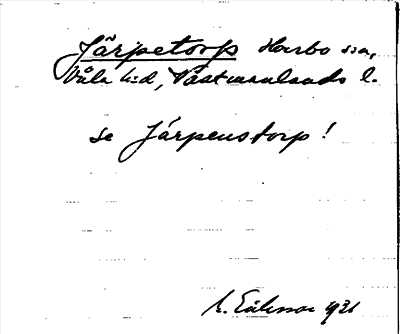 Järpetorp Harbo sn,
Våla hd, Västmanlands l.
se Järpenstorp!
1931